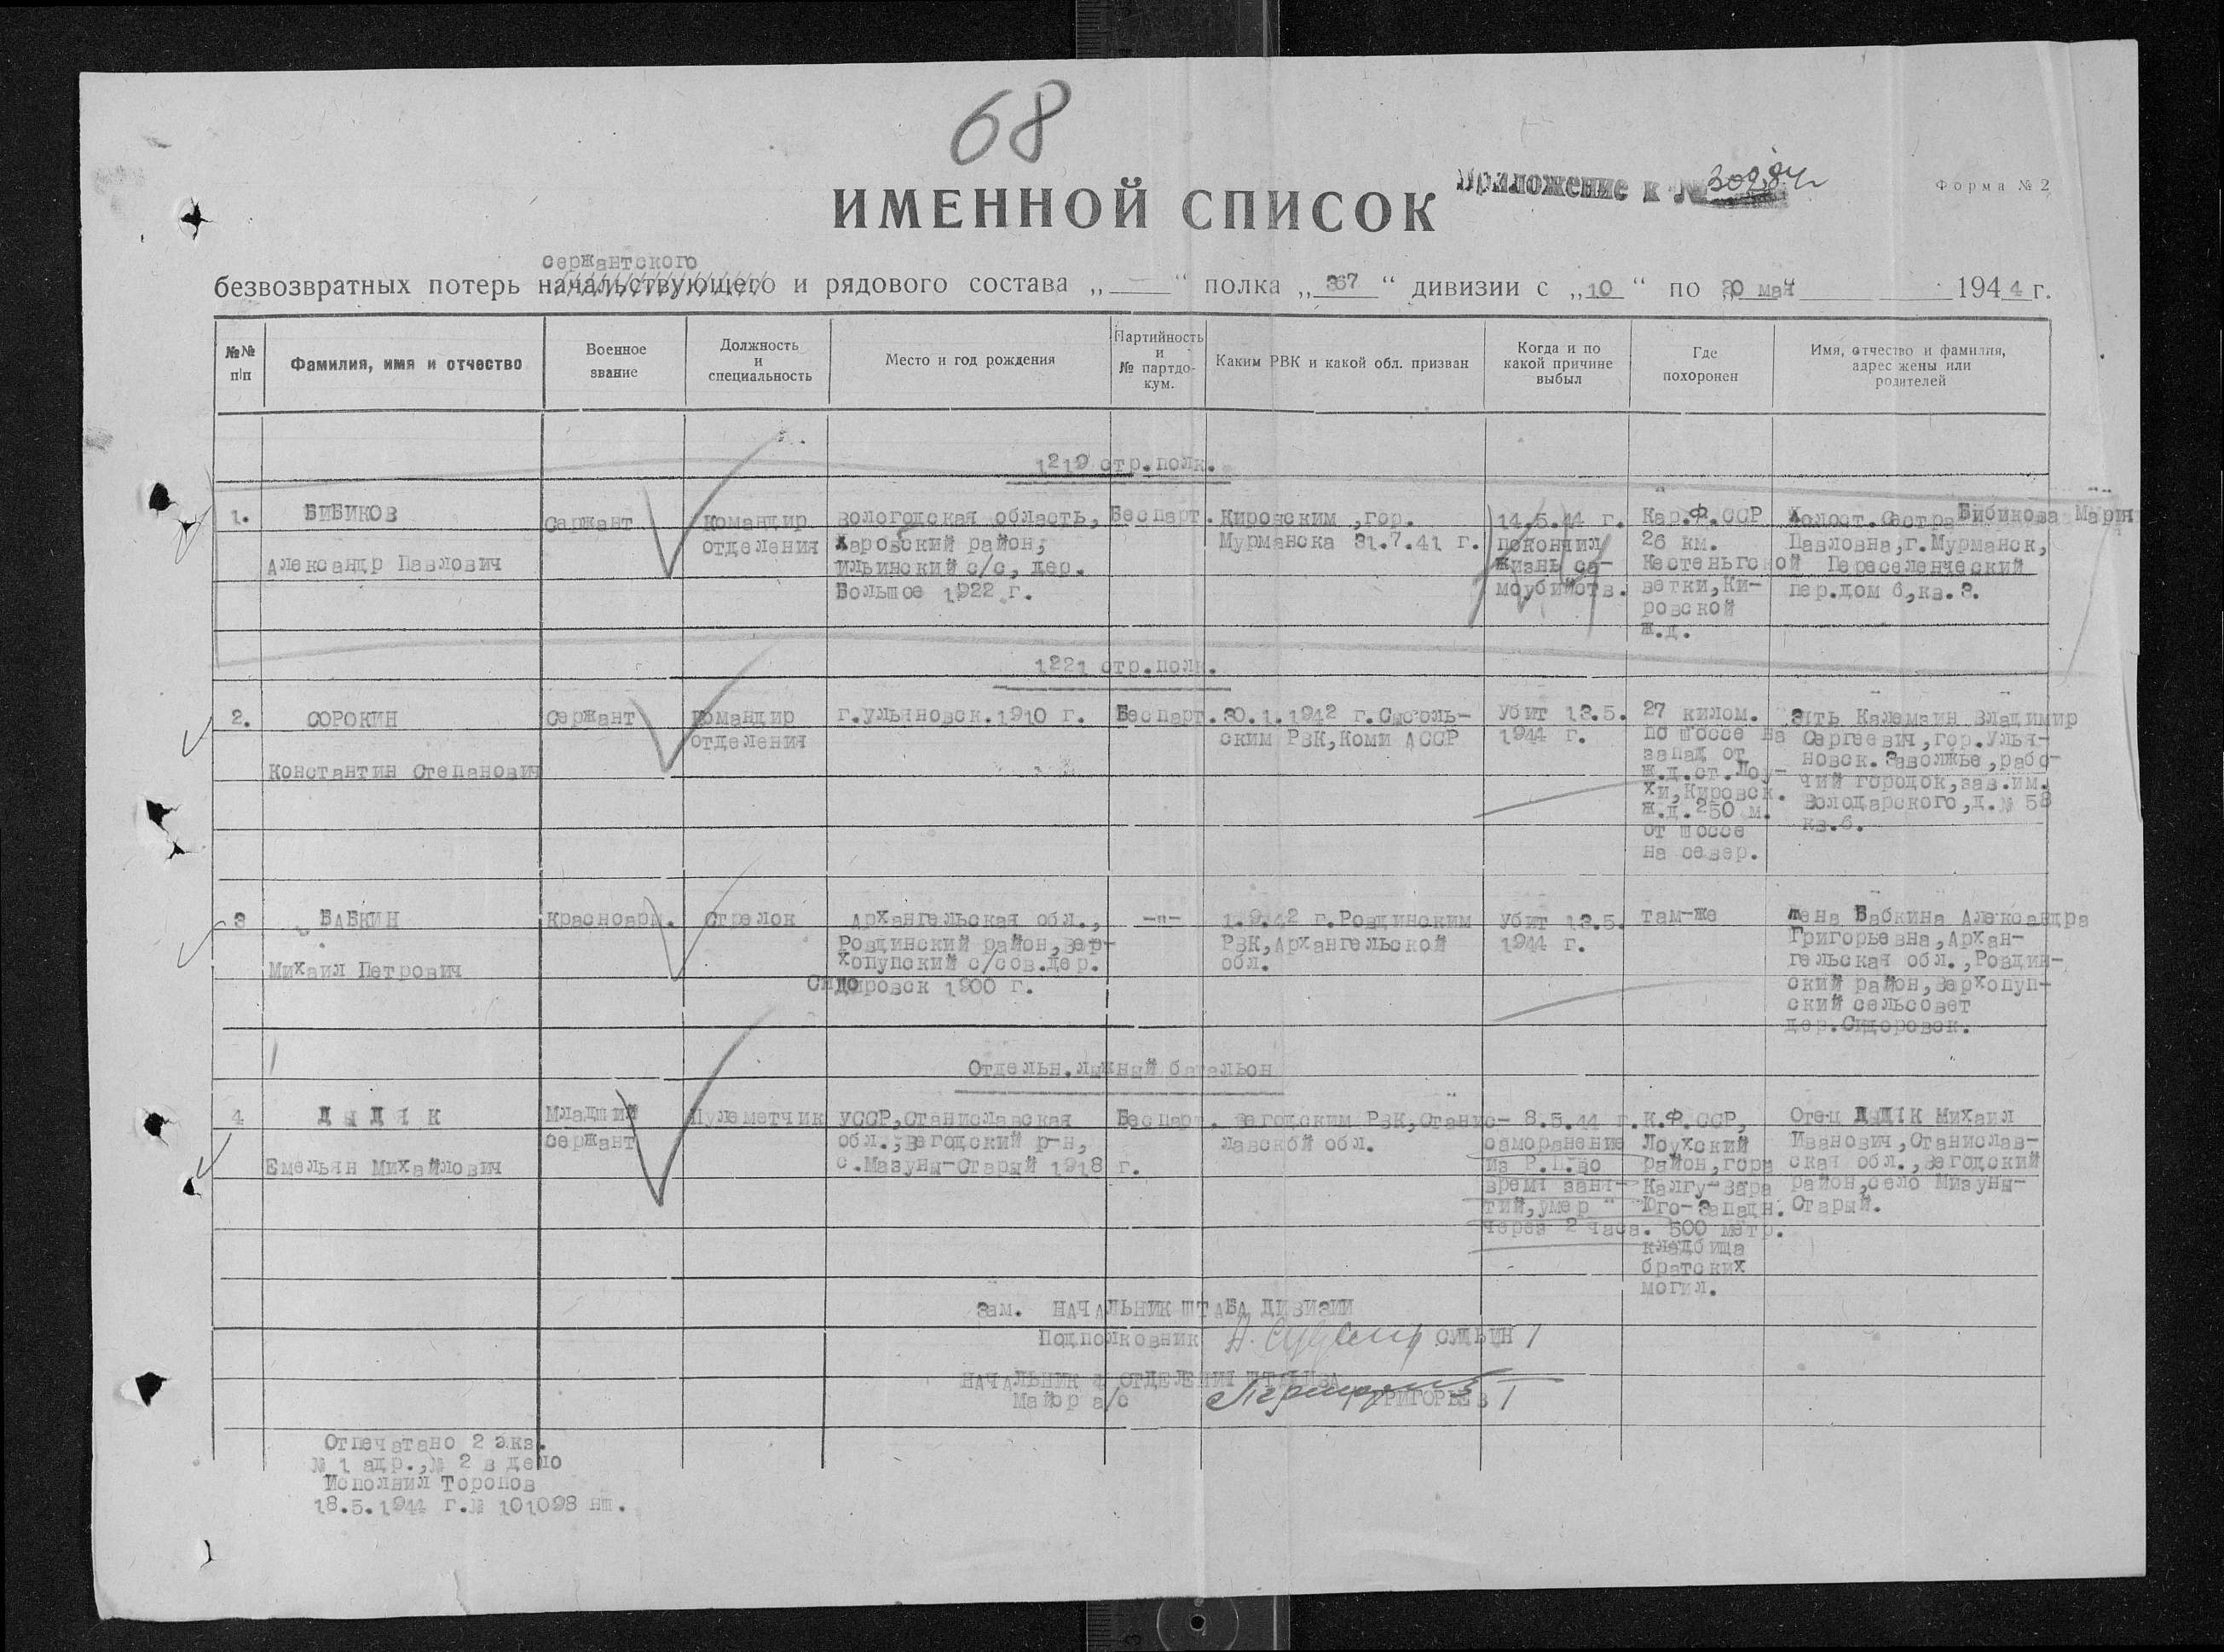 68
Приложение к №
Форма № 2
ИМЕННОЙ СПИСОК
сержантского
безвозвратных потерь начальствующего и рядового состава „ — “ полка „ 367 “ дивизии с „ 10 “ по „ 20 мая “ 1944 г.
№№ п\п
Фамилия, имя и отчество
Военное звание
Должность и специальность
Место и год рождения
Партийность и № партдокум.
Каким РВК и какой обл. призван
Когда и по какой причине выбыл
Где похоронен
Имя, отчество и фамилия, адрес жены или родителей
1219 стр.полк.
1.
БИБИКОВ
Александр Павлович
Сержант
Командир
отделения
Вологодская область,
Харовский район,
Ильинский с/с, дер.
Большое 1922 г.
Беспарт.
Кировским ,гор.
Мурманска 31.7.41 г.
14.5.44 г.
покончил
жизнь са-
моубийств.
Кар.Ф.ССР
26 км.
Кестеньгской
ветки,Ки-
ровской
ж.д.
Холост.Сестра Бибикова Мария
Павловна,г.Мурманск,
Переселенческий
пер.дом 6,кв.3.
1221 стр.полк.
2.
СОРОКИН
Константин Степанович
Сержант
Командир
отделения
г.Ульяновск.1910 г.
Беспарт.
30.1.1942 г.Сысоль-
ским РВК,Коми АССР
Убит 13.5.
1944 г.
27 килом.
по шоссе на
запад от
ж.д.ст.Лоу-
хи,Кировск.
ж.д.250 м.
от шоссе
на север.
Зять Калемзин Владимир
Сергеевич,гор.Улья-
новск.Заволжье,рабо-
чий городок,зав.им.
Володарского,д.№ 58
кв.6.
3
БАБКИН
Михаил Петрович
Красноарм.
Стрелок
Архангельская обл.,
Ровдинский район,Вер-
хопуйский с/сов.дер.
Сидоровск 1900 г.
—"—
1.9.42 г.Ровдинским
РВК,Архангельской
обл.
Убит 13.5.
1944 г.
там-же
жена Бабкина Александра
Григорьевна,Архан-
гельская обл.,Ровдин-
ский район,Верхопуй-
ский сельсовет
дер.Сидоровск.
Отдельн.лыжный батальон
4
ДЫДЯК
Емельян Михайлович
Младший
сержант
Пулеметчик
УССР,Станиславская
обл.,Вегодский р-н,
с.Мазуны-Старый 1918 г.
Беспарт.
Вегодским РВК,Станис-
лавской обл.
8.5.44 г.
саморанение
из Р.П.во
время заня-
тий,умер
через 2 часа.
К.Ф.ССР,
Лоухский
район,гора
Калгу-Вара
Юго-Западн.
500 метр.
кладбища
братских
могил.
Отец ДЫДЯК Михаил
Иванович,Станислав-
ская обл.,Вегодский
район,село Мизуны-
Старый.
Зам. НАЧАЛЬНИК ШТАБА ДИВИЗИИ
Подполковник СУДЬИН /
НАЧАЛЬНИК 4 ОТДЕЛЕНИЯ ШТАДИВА
Майор а/с ГРИГОРЬЕВ /
Отпечатано 2 экз.
№ 1 адр.,№ 2 в дело
Исполнил Торопов
18.5.1944 г.№ 101098 нш.